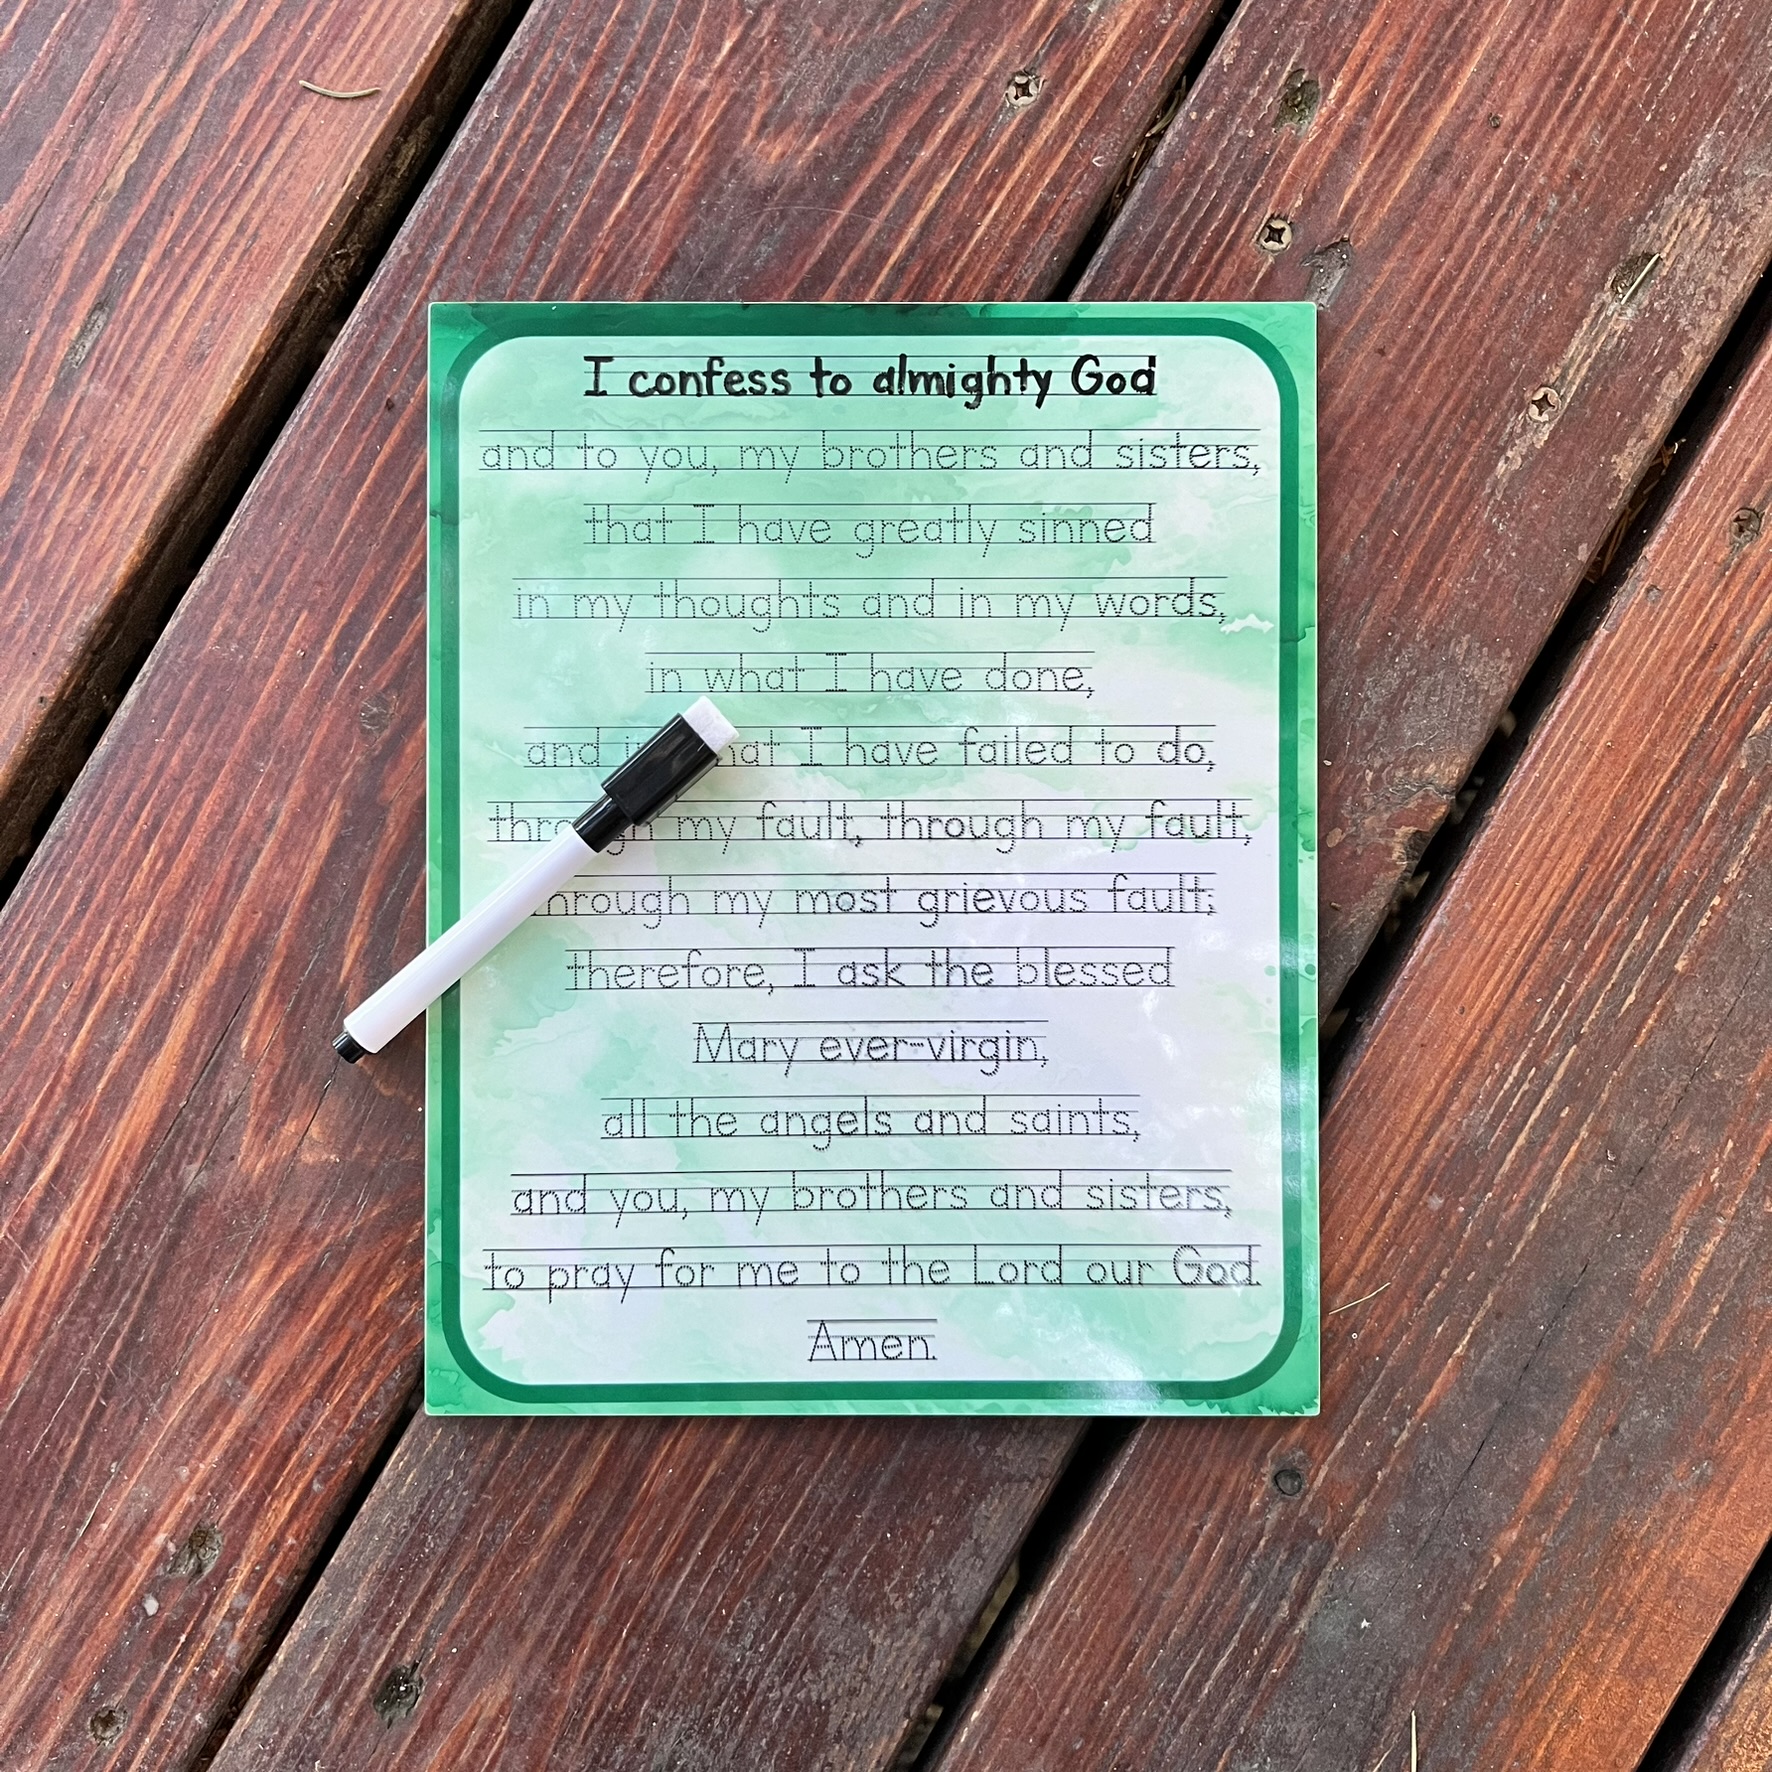 I confess to almighty God
and to you, my brothers and sisters,
that I have greatly sinned
in my thoughts and in my words,
in what I have done,
and in what I have failed to do,
through my fault, through my fault,
through my most grievous fault;
therefore, I ask the blessed
Mary ever-virgin,
all the angels and saints,
and you, my brothers and sisters,
to pray for me to the Lord our God.
Amen.